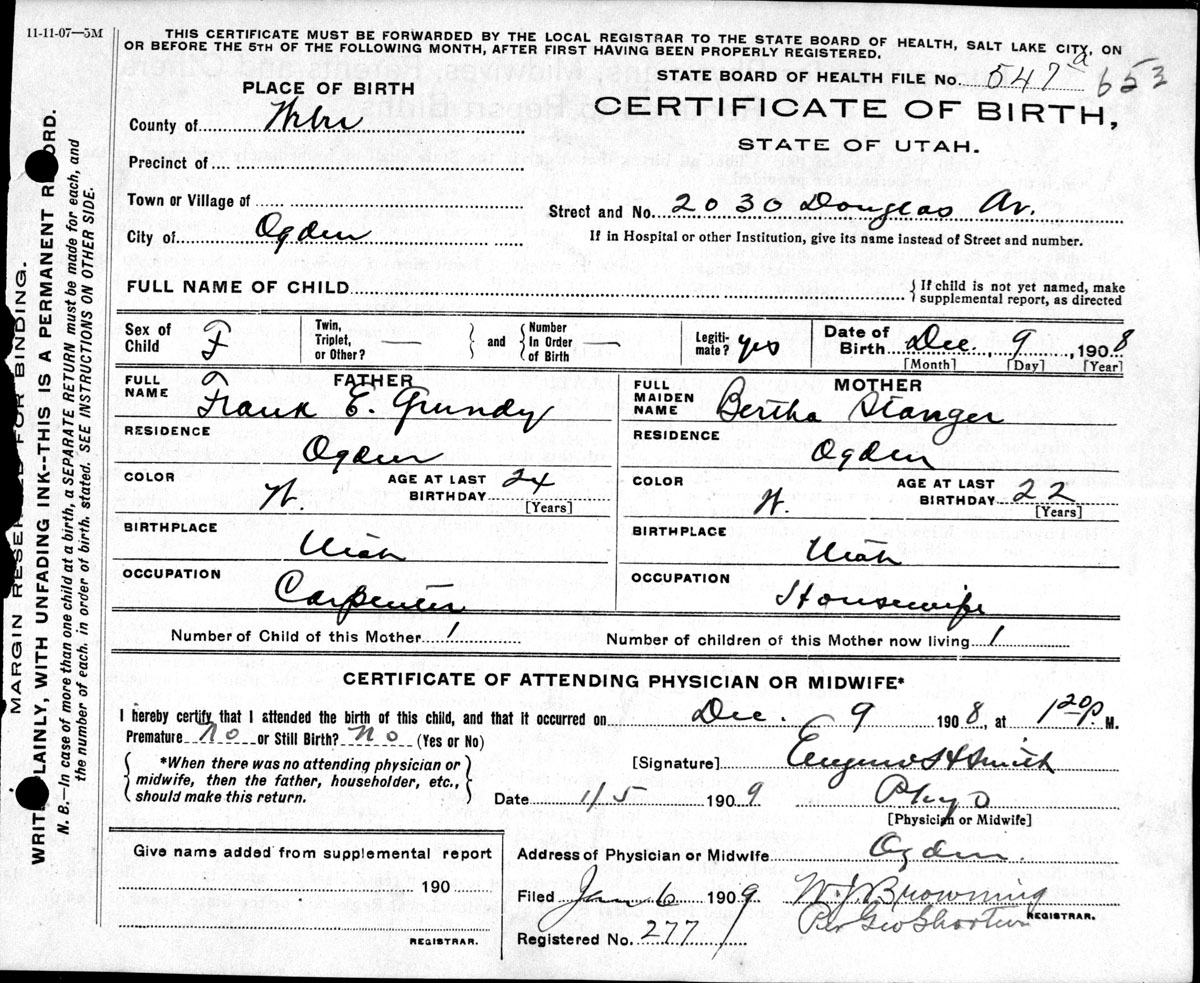 11-11-07—5M
THIS CERTIFICATE MUST BE FORWARDED BY THE LOCAL REGISTRAR TO THE STATE BOARD OF HEALTH, SALT LAKE CITY, ON
OR BEFORE THE 5TH OF THE FOLLOWING MONTH, AFTER FIRST HAVING BEEN PROPERLY REGISTERED.
STATE BOARD OF HEALTH FILE No. 547 a 653
PLACE OF BIRTH
CERTIFICATE OF BIRTH,
STATE OF UTAH.
County of
Precinct of
Town or Village of
Street and No. 2030 Douglas Av.
City of Ogden
If in Hospital or other Institution, give its name instead of Street and number.
FULL NAME OF CHILD
{ If child is not yet named, make
supplemental report, as directed
Sex of Child F
Twin, Triplet, or Other? —
and
Number In Order of Birth —
Legiti-mate? yes
Date of Birth Dec. 9, 1908
[Month] [Day] [Year]
FATHER
FULL NAME Frank E. Grundy
RESIDENCE Ogden
COLOR W. AGE AT LAST BIRTHDAY 24 [Years]
BIRTHPLACE Utah
OCCUPATION Carpenter
MOTHER
FULL MAIDEN NAME Bertha Stanger
RESIDENCE Ogden
COLOR W. AGE AT LAST BIRTHDAY 22 [Years]
BIRTHPLACE Utah
OCCUPATION Housewife
Number of Child of this Mother 1
Number of children of this Mother now living 1
CERTIFICATE OF ATTENDING PHYSICIAN OR MIDWIFE*
I hereby certify that I attended the birth of this child, and that it occurred on Dec. 9 1908, at 1 20 p. M.
Premature No or Still Birth? No (Yes or No)
{ *When there was no attending physician or
midwife, then the father, householder, etc.,
should make this return. }
[Signature] Eugene H Smith
Date 1/5 1909
[Physician or Midwife]
Give name added from supplemental report
190
REGISTRAR.
Address of Physician or Midwife Ogden
Filed Jan 6 1909 W. J. Browning
Per Geo REGISTRAR.
Registered No. 277
MARGIN RESERVED FOR BINDING.
WRITE PLAINLY, WITH UNFADING INK--THIS IS A PERMANENT RECORD.
N. B.—In case of more than one child at a birth, a SEPARATE RETURN must be made for each, and
the number of each. in order of birth. stated. SEE INSTRUCTIONS ON OTHER SIDE.